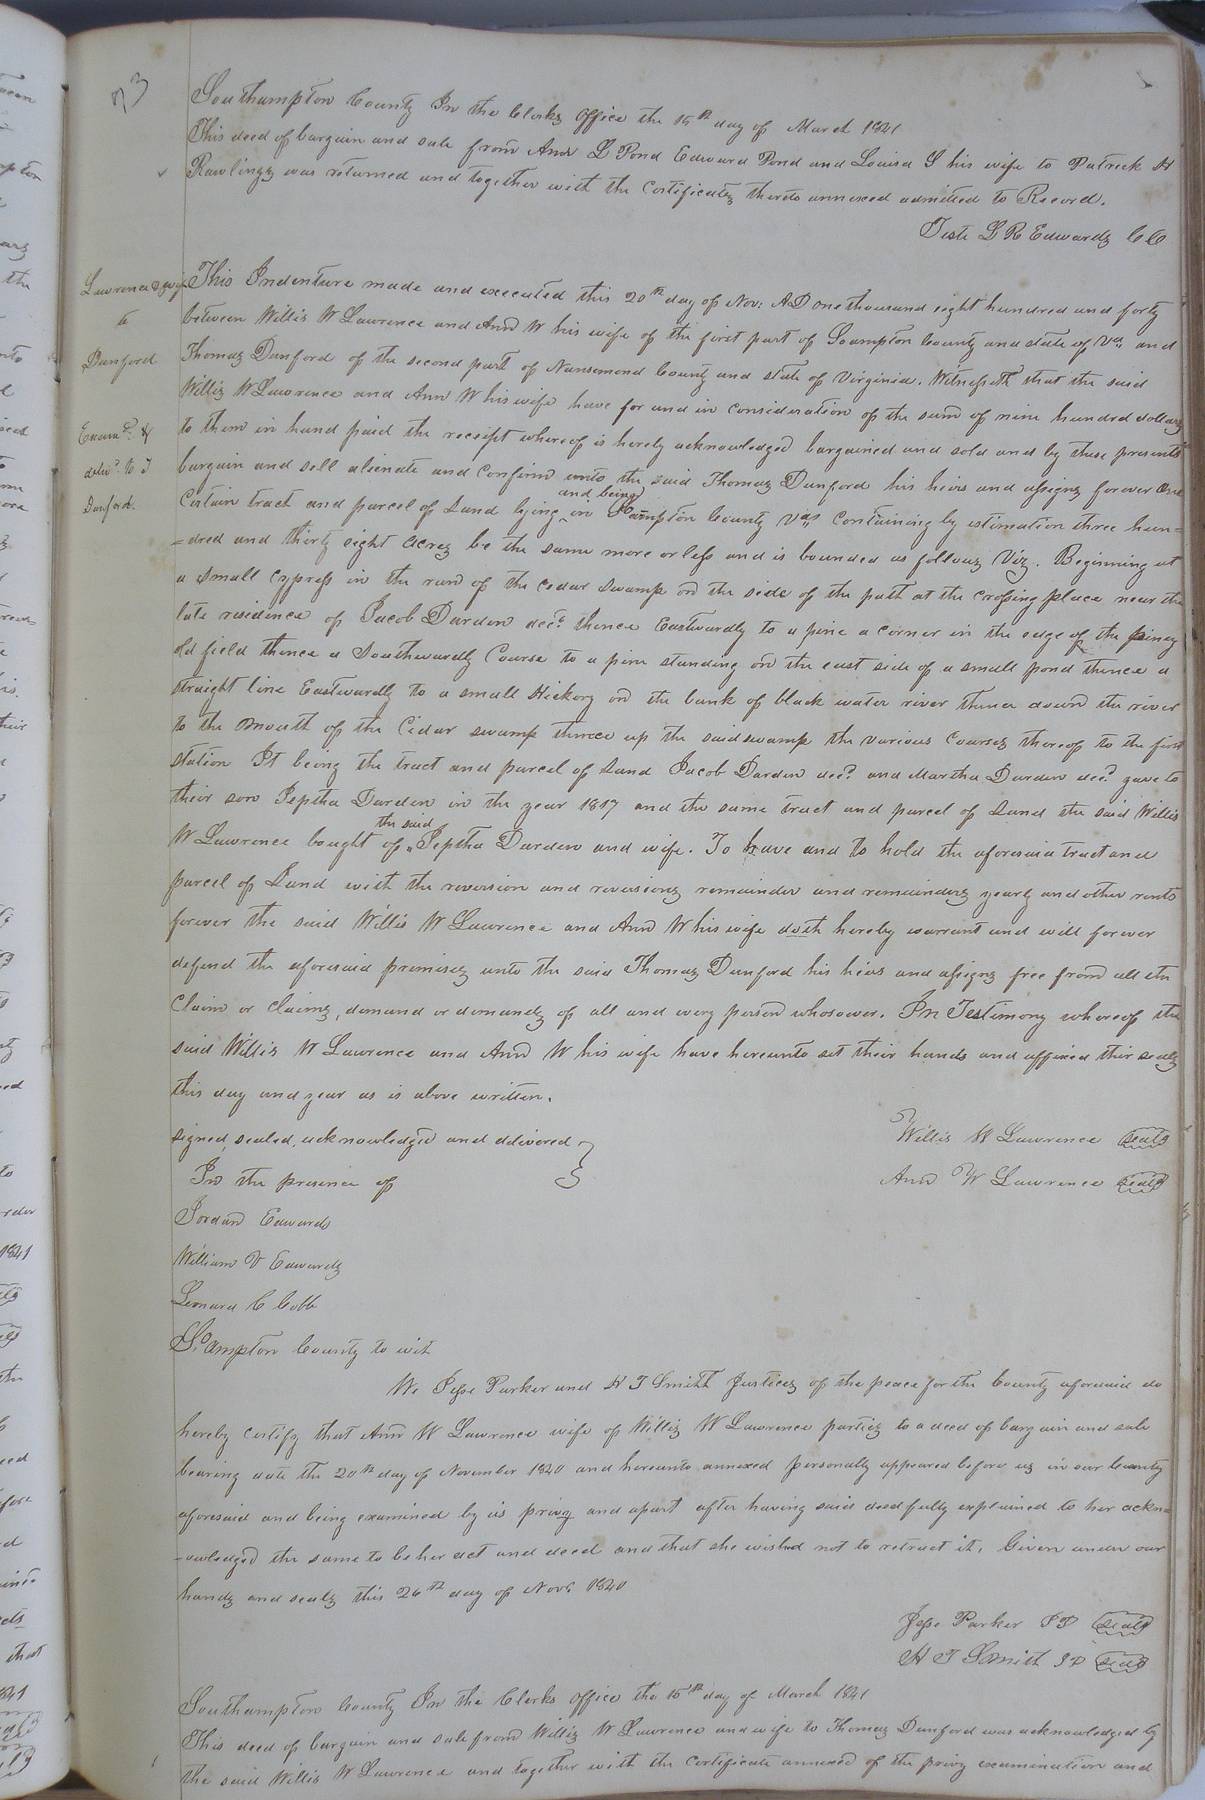 73
Southampton County In the Clerks Office the 15th day of March 1841
This deed of bargain and sale from Ann L Pond Edward Pond and Louisa S his wife to Patrick H
Rawlings was returned and together with the Certificates thereto annexed admitted to Record.
Teste L R Edwards CC
Lawrence & wife
to
Dunford
Exam.d &
deliv.d to T
Dunford.
This Indenture made and executed this 20th day of Nov: AD one thousand eight hundred and forty
between Willis W Lawrence and Ann W his wife of the first part of Soampton County and state of Va and
Thomas Dunford of the second part of Nansemond County and state of Virginia. Witnesseth that the said
Willis W Lawrence and Ann W his wife have for and in consideration of the sum of nine hundred dollars
to them in hand paid the receipt whereof is hereby acknowledged bargained and sold and by these presents
bargain and sell alienate and confirm unto the said Thomas Dunford his heirs and assigns forever one
Certain tract and parcel of Land lying and being in Soampton County Va Containing by estimation three hun=
=dred and thirty eight Acres be the same more or less and is bounded as follows Viz. Beginning at
a small cypress in the run of the cedar swamp on the side of the path at the crossing place near the
late residence of Jacob Darden decd thence Eastwardly to a pine a corner in the edge of the piney
old field thence a Southwardly Course to a pine standing on the east side of a small pond thence a
straight line Eastwardly to a small Hickory on the bank of black water river thence down the river
to the mouth of the Cedar swamp thence up the said swamp the various Courses thereof to the first
station It being the tract and parcel of Land Jacob Darden decd and Martha Darden decd gave to
their son Jeptha Darden in the year 1817 and the same tract and parcel of Land the said Willis
W Lawrence bought of the said Jeptha Darden and wife. To have and to hold the aforesaid tract and
parcel of Land with the reversion and reversions remainder and remainders yearly and other rents
forever the said Willis W Lawrence and Ann W his wife doth hereby warrant and will forever
defend the aforesaid premises unto the said Thomas Dunford his heirs and assigns free from all the
Claim or Claims, demand or demands of all and every person whosoever. In Testimony whereof the
said Willis W Lawrence and Ann W his wife have hereunto set their hands and affixed their seals
this day and year as is above written.
signed, sealed, acknowledged and delivered
In the presence of
Willis W Lawrence seal
Ann W Lawrence seal
Jordan Edwards
William V Edwards
Leonard C Cobb
Soampton County to wit
We Jesse Parker and H T Smith Justices of the peace for the County aforesaid do
hereby certify that Ann W Lawrence wife of Willis W Lawrence parties to a deed of bargain and sale
bearing date the 20th day of November 1840 and hereunto annexed personally appeared before us in our County
aforesaid and being examined by us privy and apart after having said deed fully explained to her ackn=
=owledged the same to be her act and deed and that she wished not to retract it. Given under our
hands and seals this 26th day of Nov 1840
Jesse Parker JP seal
H T Smith JP seal
Southampton County In the Clerks Office the 15th day of March 1841
This deed of bargain and sale from Willis W Lawrence and wife to Thomas Dunford was acknowledged by
the said Willis W Lawrence and together with the certificate annexed of the privy examination and